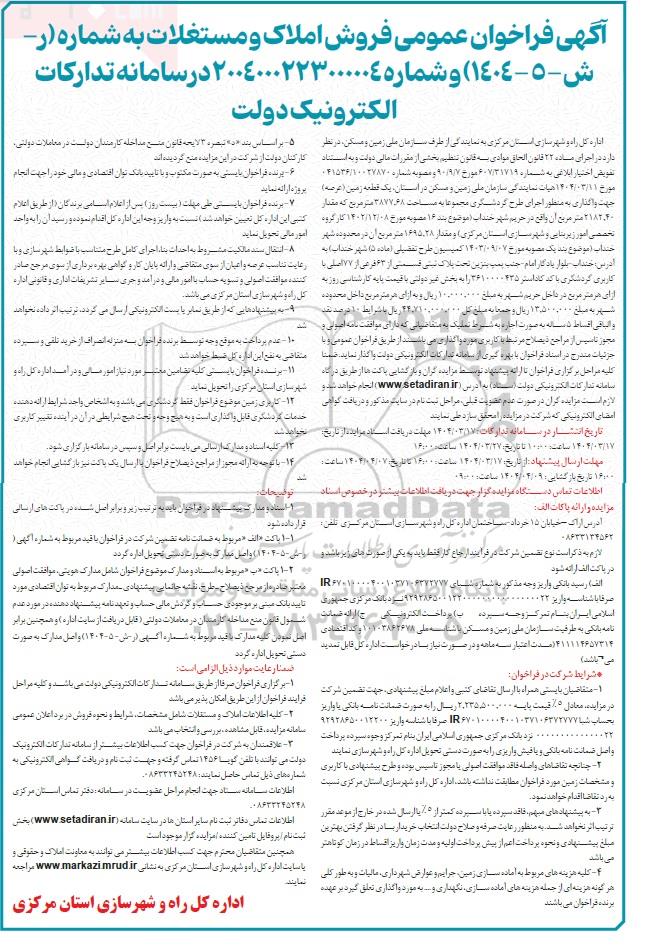 آگهی فراخوان عمومی فروش املاک و مستغلات به شماره (ر-
ش-۵-۱۴۰۴) و شماره ۲۰۰۴۰۰۰۲۲۳۰۰۰۰۰۴ در سامانه تدارکات
الکترونیک دولت
اداره کل راه و شهرسازی استان مرکزی به نمایندگی از طرف سازمان ملی زمین و مسکن، در نظر
دارد در اجرای ماده ۲۲ قانون الحاق موادی به قانون تنظیم بخشی از مقررات مالی دولت و به استناد
تفویض اختیار ابلاغی به شماره ۶۰۷/۳۱۷۱۹ مورخ ۹۰/۹/۷ و مصوبه شماره ۰۴۱۵۳۶/۱۰۰۲۷۸۷۰
مورخ ۱۴۰۴/۰۳/۱۱ هیات نمایندگی سازمان ملی زمین و مسکن در استان، یک قطعه زمین (عرصه)
جهت واگذاری به منظور اجرای طرح گردشگری مجموعا به مساحت ۳۸۷۷,۶۸ مترمربع که مقدار
۲۱۸۲,۴۰ متر مربع آن واقع در حریم شهر خنداب (موضوع بند ۱۶ مصوبه مورخ ۱۴۰۲/۱۲/۰۸ کارگروه
تخصصی امور زیربنایی و شهرسازی استان مرکزی) و مقدار ۱۶۹۵,۲۸ متر مربع آن در محدوده شهر
خنداب (موضوع بند یک مصوبه مورخ ۱۴۰۳/۰۹/۰۷ کمیسیون طرح تفصیلی (ماده ۵) شهر خنداب) به
آدرس: خنداب-بلوار یادگار امام-جنب پمپ بنزین تحت پلاک ثبتی قسمتی از ۶۳ فرعی از ۷۷ اصلی با
کاربری گردشگری با کد کاداستر ۳۶۱۰۰۰۰۴۳۵ را به بخش غیر دولتی با قیمت پایه کارشناسی روز به
ازای هر متر مربع در داخل حریم شهر به مبلغ ۱۰,۰۰۰,۰۰۰ ریال و به ازای هر متر مربع داخل محدوده
شهر به مبلغ ۱۳,۵۰۰,۰۰۰ ریال و جمعا به مبلغ کل ۴۴,۷۱۰,۰۰۰,۰۰۰ ریال با شرایط ۱۰ درصد نقد
و الباقی اقساط ۵ ساله به صورت اجاره به شرط تملیک به متقاضیانی که دارای موافقت نامه اصولی و
مجوز تاسیس از مراجع ذیصلاح مرتبط با کاربری مورد واگذاری می باشند از طریق فراخوان عمومی و با
جزئیات مندرج در اسناد فراخوان با بهره گیری از سامانه تدارکات الکترونیکی دولت واگذار نماید. ضمنا
کلیه مراحل برگزاری فراخوان تا ارائه پیشنهاد توسط مزایده گران و بازگشایی پاکت ها از طریق درگاه
سامانه تدارکات الکترونیکی دولت (ستاد) به آدرس (www.setadiran.ir) انجام خواهد شد و
لازم است مزایده گران در صورت عدم عضویت قبلی، مراحل ثبت نام در سایت مذکور و دریافت گواهی
امضای الکترونیکی که شرکت در مزایده را محقق سازد طی نمایند.
تاریخ انتشار در سامانه تدارکات: ۱۴۰۴/۰۳/۱۷ مهلت دریافت اسناد مزایده: از تاریخ:
۱۴۰۴/۰۳/۱۷ ساعت: ۱۰:۰۰ تا تاریخ: ۱۴۰۴/۰۳/۲۷ ساعت: ۱۶:۰۰
مهلت ارسال پیشنهاد: از تاریخ: ۱۴۰۴/۰۳/۱۷ ساعت: ۱۶:۰۰ تا تاریخ: ۱۴۰۴/۰۴/۰۷ ساعت:
۱۶:۰۰ تاریخ بازگشایی: ۱۴۰۴/۰۴/۰۹ ساعت: ۰۹:۰۰
اطلاعات تماس دستگاه مزایده گزار جهت دریافت اطلاعات بیشتر در خصوص اسناد
مزایده و ارائه پاکات الف:
آدرس اراک-خیابان ۱۵ خرداد-ساختمان اداره کل راه و شهرسازی استان مرکزی تلفن:
۰۸۶۳۳۱۳۴۵۶۲
لازم به ذکر است نوع تضمین شرکت در فرایند ارجاع کار فقط باید به یکی از صورت های زیر باشد و
در پاکت الف ارائه شود
الف) رسید بانکی واریز وجه مذکور به شماره شبای IR ۶۷۰۱۰۰۰۰۴۰۰۱۰۳۷۱۰۶۳۷۲۷۷۷
صرفا با شناسه واریز ۹۲۹۲۸۶۵۰۰۱۲۲۰۰۰۰۰۰۰۰۰۰۰۰۰۰۰۲۲ نزد بانک مرکزی جمهوری
اسلامی ایران بنام تمرکز وجوه سپرده ب) پرداخت الکترونیکی ج) ارائه ضمانت
نامه بانکی به ظرفیت سازمان ملی زمین و مسکن با شناسه ملی ۱۰۱۰۳۸۶۲۶۷۸ و کد اقتصادی
۴۱۱۱۱۴۶۵۷۳۱۴ (مدت اعتبار سه ماهه و در صورت نیاز بنا درخواست اداره کل قابل تمدید
می باشد)
*شرایط شرکت در فراخوان:
۱-متقاضیان بایستی همراه با ارسال تقاضای کتبی و اعلام مبلغ پیشنهادی، جهت تضمین شرکت
در مزایده، معادل ۵٪ قیمت پایه ۲,۲۳۵,۵۰۰,۰۰۰ ریال را به صورت ضمانت نامه بانکی یا واریز
بحساب شبا IR ۶۷۰۱۰۰۰۰۴۰۰۱۰۳۷۱۰۶۳۷۲۷۷۷ صرفا با شناسه واریز ۹۲۹۲۸۶۵۰۰۱۲۲۰۰
۰۰۰۰۰۰۰۰۰۰۰۰۰۰۲۲ نزد بانک مرکزی جمهوری اسلامی ایران بنام تمرکز وجوه سپرده پرداخت
واصل ضمانت نامه بانکی و یا فیش واریزی را به صورت دستی تحویل اداره کل راه و شهرسازی نمایند
۲-چنانچه تقاضاهای واصله فاقد موافقت اصولی یا مجوز تاسیس بوده و طرح پیشنهادی با کاربری
و مشخصات زمین مورد فراخوان مطابقت نداشته باشد، اداره کل راه و شهرسازی استان مرکزی نسبت
به رد تقاضا اقدام خواهد نمود.
۳-به پیشنهادهای مبهم، فاقد سپرده یا با سپرده کمتر از ۵٪ یا ارسال شده در خارج از موعد مقرر
ترتیب اثر نخواهد شد. به منظور رعایت صرفه و صلاح دولت انتخاب خریدار با در نظر گرفتن بهترین
مبلغ پیشنهادی و نحوه پرداخت اعم از پیش پرداخت اولیه و مدت زمان واریز اقساط در زمان کوتاهتر
می باشد
۴-کلیه هزینه های مربوط به آماده سازی زمین، جرایم و عوارض شهرداری، مالیات و به طور کلی
هر گونه هزینه ای از جمله هزینه های آماده سازی، نگهداری و ... به مورد واگذاری تعلق گیرد بر عهده
برنده فراخوان می باشد
۵-بر اساس بند «د» تبصره ۳ لایحه قانون منع مداخله کارمندان دولت در معاملات دولتی،
کارکنان دولت از شرکت در این مزایده منع گردیده اند
۶-برنده فراخوان بایستی به صورت مکتوب و با تایید بانک توان اقتصادی و مالی خود را جهت انجام
پروژه ارائه نماید
۷-برنده فراخوان بایستی طی مهلت (بیست روز) پس از اعلام اسامی برندگان (از طریق اعلام
کتبی این اداره کل تعیین خواهد شد) نسبت به واریز وجه این اداره کل اقدام نموده و رسید آن را به واحد
امور مالی تحویل نماید
۸-انتقال سند مالکیت مشروط به احداث بنا، اجرای کامل طرح متناسب با ضوابط شهرسازی و با
رعایت تناسب عرصه و اعیان از سوی متقاضی و ارائه پایان کار و گواهی بهره برداری از سوی مرجع صادر
کننده موافقت اصولی و تسویه حساب با امور مالی و درآمد و جری سایر تشریفات اداری و قانونی اداره
کل راه و شهرسازی استان مرکزی می باشد.
۹-به پیشنهادهایی که از طریق نمابر یا پست الکترونیکی ارسال می گردد، ترتیب اثر داده نخواهد
شد
۱۰-عدم پرداخت به موقع وجه توسط برنده فراخوان به منزله انصراف از خرید تلقی و سپرده
متقاضی به نفع این اداره کل ضبط خواهد شد
۱۱-برنده فراخوان بایستی کلیه تضامین معتبر مورد نیاز امور مالی و درآمد اداره کل راه و
شهرسازی استان مرکزی را تحویل نماید
۱۲-کاربری زمین موضوع فراخوان فقط گردشگری می باشد و به اشخاص واجد شرایط ارائه دهنده
خدمات گردشگری قابل واگذاری است و به هیچ وجه و تحت هیچ شرایطی در آن در آینده تغییر کاربری
نخواهد شد
۱۳-کلیه اسناد و مدارک ارسالی می بایست برابر اصل و سپس در سامانه بارگزاری شود.
۱۴-با توجه به ارائه مجوز از مراجع ذیصلاح فراخوان با ارسال یک پاکت نیز بازگشایی انجام خواهد
شد
توضیحات:
۱-اسناد و مدارک پیشنهاد در فراخوان باید به ترتیب زیر و برابر اصل شده در پاکت های ارسالی
قرار داده شود
۱-۱ پاکت «الف» مربوط به ضمانت نامه تضمین شرکت در فراخوان با قید مربوط به شماره آگهی (
ر-ش-۵-۱۴۰۴) واصل مدارک به صورت دستی تحویل اداره گردد
۱-۲ پاکت «ب» مربوط به اسناد و مدارک موضوع فراخوان شامل مدارک هویتی، موافقت اصولی
معتبر صادره از مرجع ذیصلاح-طرح، نقشه جانمایی پیشنهادی-مدارک مربوط به توان اقتصادی مورد
تایید بانک مبنی بر موجودی حساب و گردش مالی حساب و تعهد نامه پیشنهاد دهنده در مورد عدم
شمول قانون منع مداخله کارمندان در معاملات دولتی (قابل دریافت از سایت اداره) و همچنین برابر
اصل نمودن کلیه مدارک با قید مربوط به شماره آگهی (ر-ش-۵-۱۴۰۴) و اصل مدارک به صورت
دستی تحویل اداره گردد
ضمنا رعایت موارد ذیل الزامی است:
۱-برگزاری فراخوان صرفا از طریق سامانه تدارکات الکترونیکی دولت می باشد و کلیه مراحل
فرایند فراخوان از این طریق امکان پذیر می باشد
۲-کلیه اطلاعات املاک و مستقلات شامل مشخصات، شرایط و نحوه فروش در برد اعلان عمومی
سامانه مزایده، قابل مشاهده، بررسی و انتخاب می باشد
۳-علاقمندان به شرکت در فراخوان جهت کسب اطلاعات بیشتر از سامانه تدارکات الکترونیک
دولت می توانند با تلفن گویا ۱۴۵۶ تماس گرفته و جهت ثبت نام و دریافت گواهی الکترونیکی به
شماره های ذیل تماس حاصل نمایند: ۰۸۶۳۳۲۴۵۲۴۸
اطلاعات سامانه ستاد جهت انجام مراحل عضویت در سامانه: دفتر تماس استان مرکزی
۰۸۶۳۳۲۴۵۲۴۸
اطلاعات تماس دفاتر ثبت نام سایر استان ها در سایت سامانه (www.setadiran.ir) بخش
ثبت نام/پروفایل تامین کننده/مزایده گزار موجود است
همچنین متقاضیان محترم جهت کسب اطلاعات بیشتر می توانند به معاونت املاک و حقوقی و
یا سایت اداره کل راه و شهرسازی استان مرکزی به نشانی www.markazi.mrud.ir مراجعه
نمایند.
اداره کل راه و شهرسازی استان مرکزی
ParsNamadData